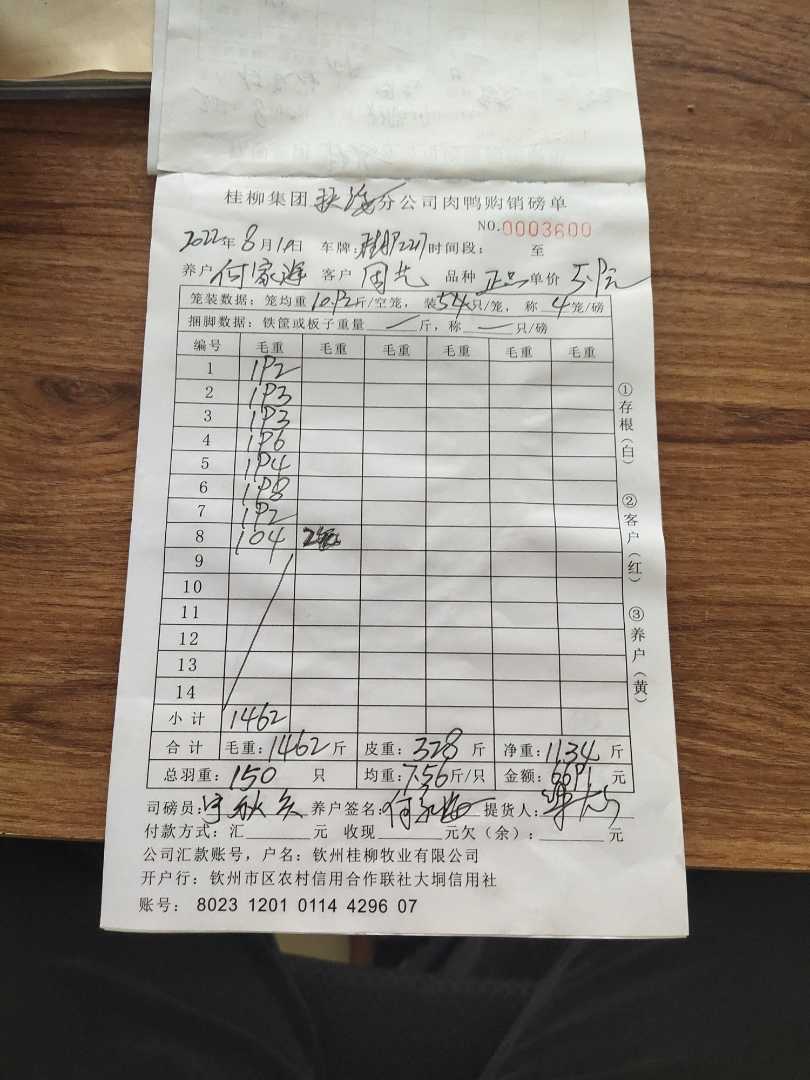 桂柳集团 分公司肉鸭购销磅单
NO.0003600
2022年8月 日 车牌: 时间段: 至
养户 何家海 客户 周先 品种 正品 单价 5.9元
笼装数据:笼均重10.92斤/空笼, 装5 只/笼, 称4笼/磅
捆脚数据:铁筐或板子重量 斤,称 只/磅
编号 毛重 毛重 毛重 毛重 毛重 毛重
1 192
2 193
3 193
4 196
5 194
6 198
7 192
8 104 2笼
9
10
11
12
13
14
小计 1462
合计 毛重:1462斤 皮重:328斤 净重:1134斤
总羽重:150只 均重:7.56斤/只 金额:6691元
司磅员: 养户签名:何家海 提货人:
付款方式:汇 元 收现 元欠(余): 元
公司汇款账号,户名:钦州桂柳牧业有限公司
开户行:钦州市区农村信用合作联社大垌信用社
账号: 8023 1201 0114 4296 07
①存根(白) ②客户(红) ③养户(黄)